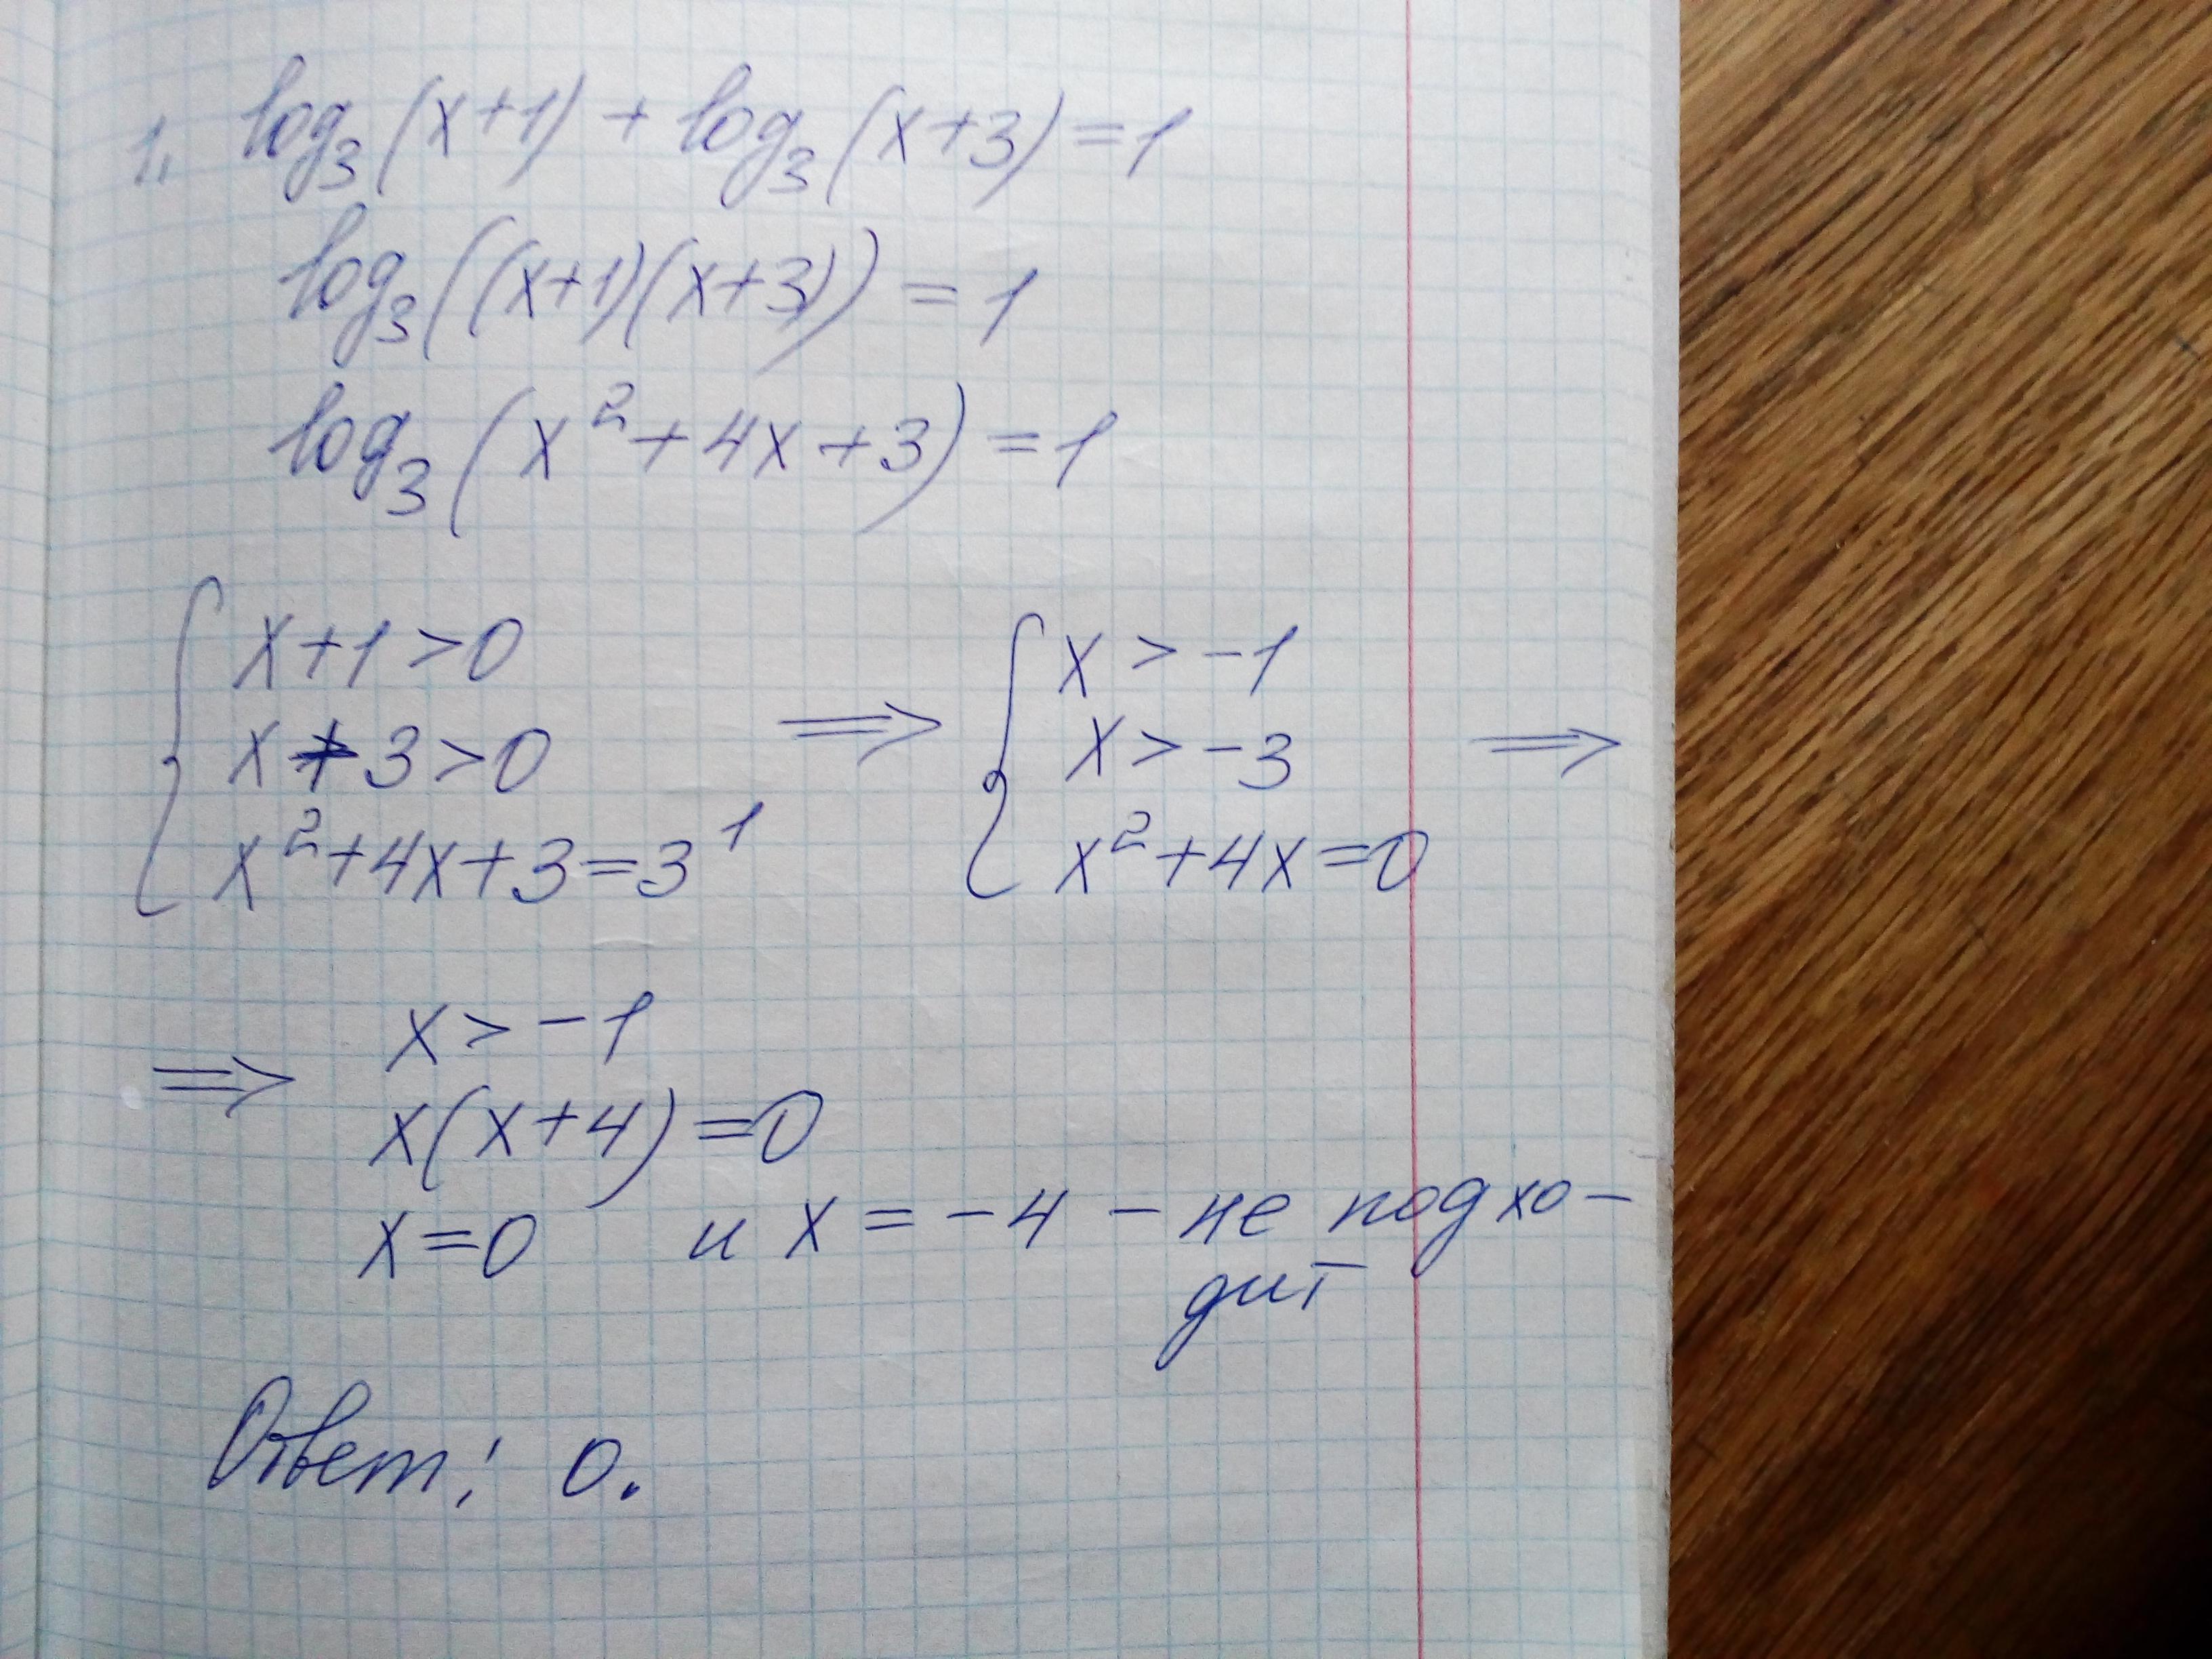 1. log₃(x+1) + log₃(x+3) = 1
log₃((x+1)(x+3)) = 1
log₃(x²+4x+3) = 1
{ x+1>0
x+3>0
x²+4x+3=3¹
⟹ { x > -1
x > -3
x²+4x=0 ⟹
⟹ x > -1
x(x+4)=0
x=0 и x = -4 - не подхо-
дит
Ответ: 0.